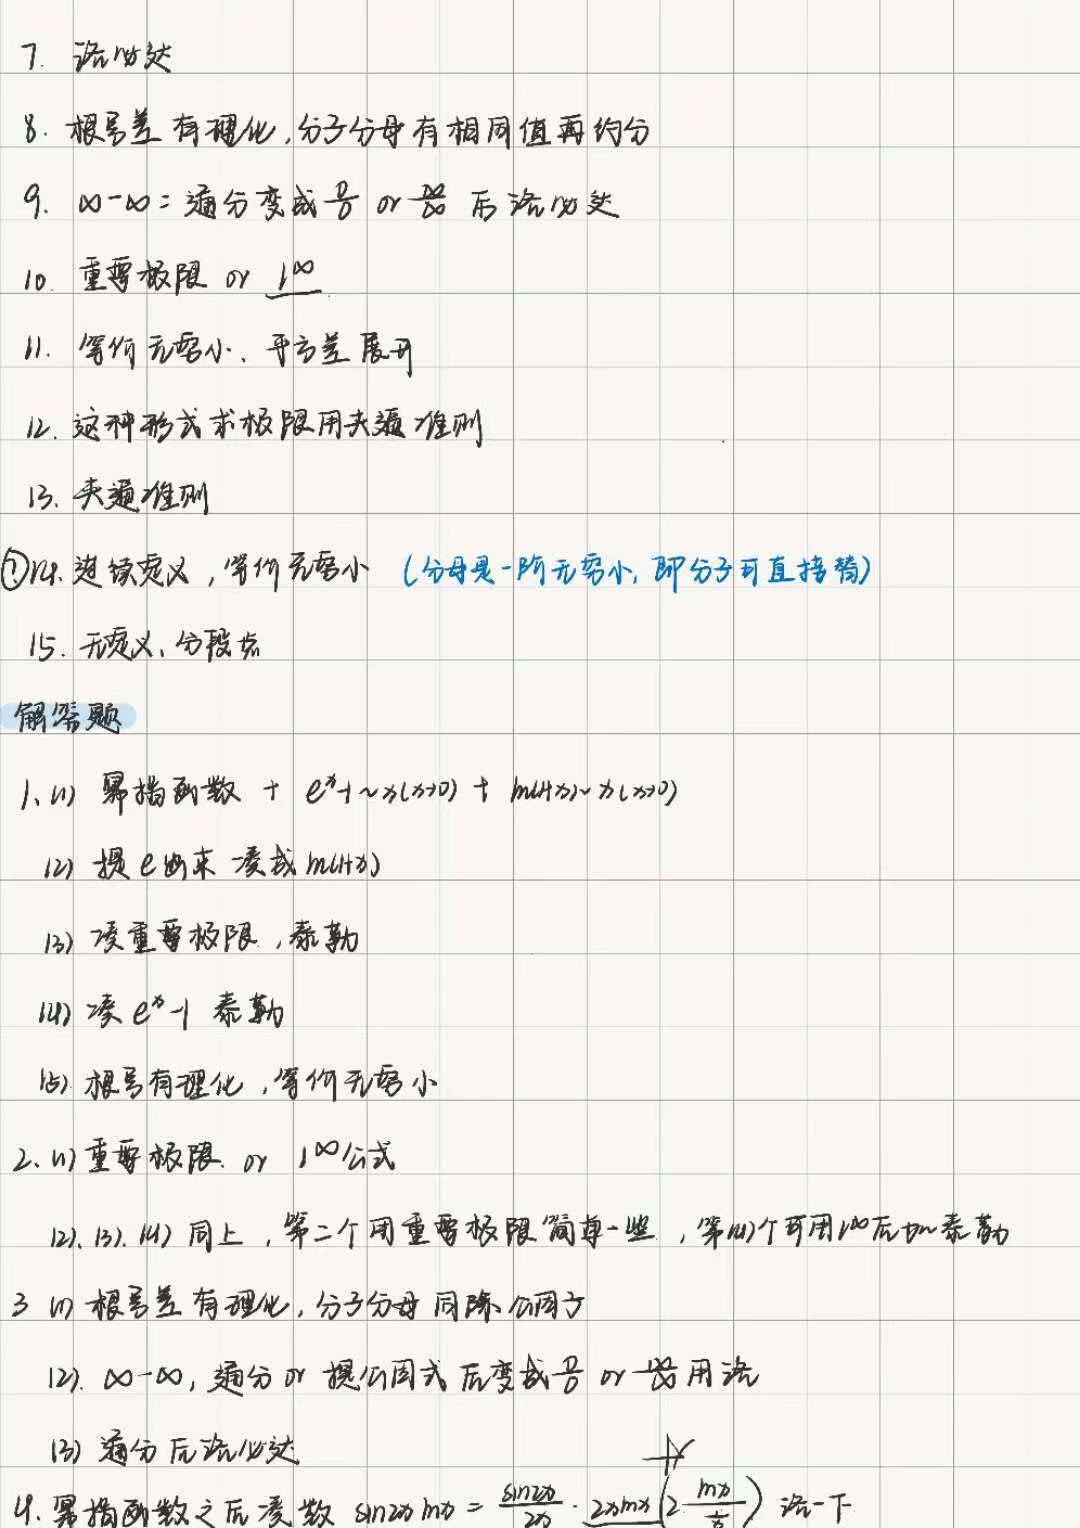 7. 洛必达
8. 根号差有理化,分子分母有相同值再约分
9. ∞-∞：通分变成 0/0 or ∞/∞ 后洛必达
10. 重要极限 or 1^∞
11. 等价无穷小、平方差展开
12. 这种形式求极限用夹逼准则
13. 夹逼准则
①14. 连续定义,等价无穷小 (分母是一阶无穷小,即分子可直接替)
15. 无定义、分段点
解答题
1. (1) 幂指函数 + e^x-1~x(x→0) + ln(1+x)~x(x→0)
(2) 提e出来 凑成ln(1+x)
(3) 凑重要极限,泰勒
(4) 凑e^x-1 泰勒
(5) 根号有理化,等价无穷小
2. (1) 重要极限 or 1^∞公式
(2). (3). (4) 同上,第二个用重要极限简单一些,第(4)个可用1^∞后 泰勒
3 (1) 根号差有理化,分子分母同除公因子
(2). ∞-∞,通分 or 提公因式后变成 0/0 or ∞/∞ 用洛
(3) 通分后洛必达
4. 幂指函数之后凑数 sin2x lnx = sin2x/2x · 2xlnx (2· lnx/(1/x)) 洛一下